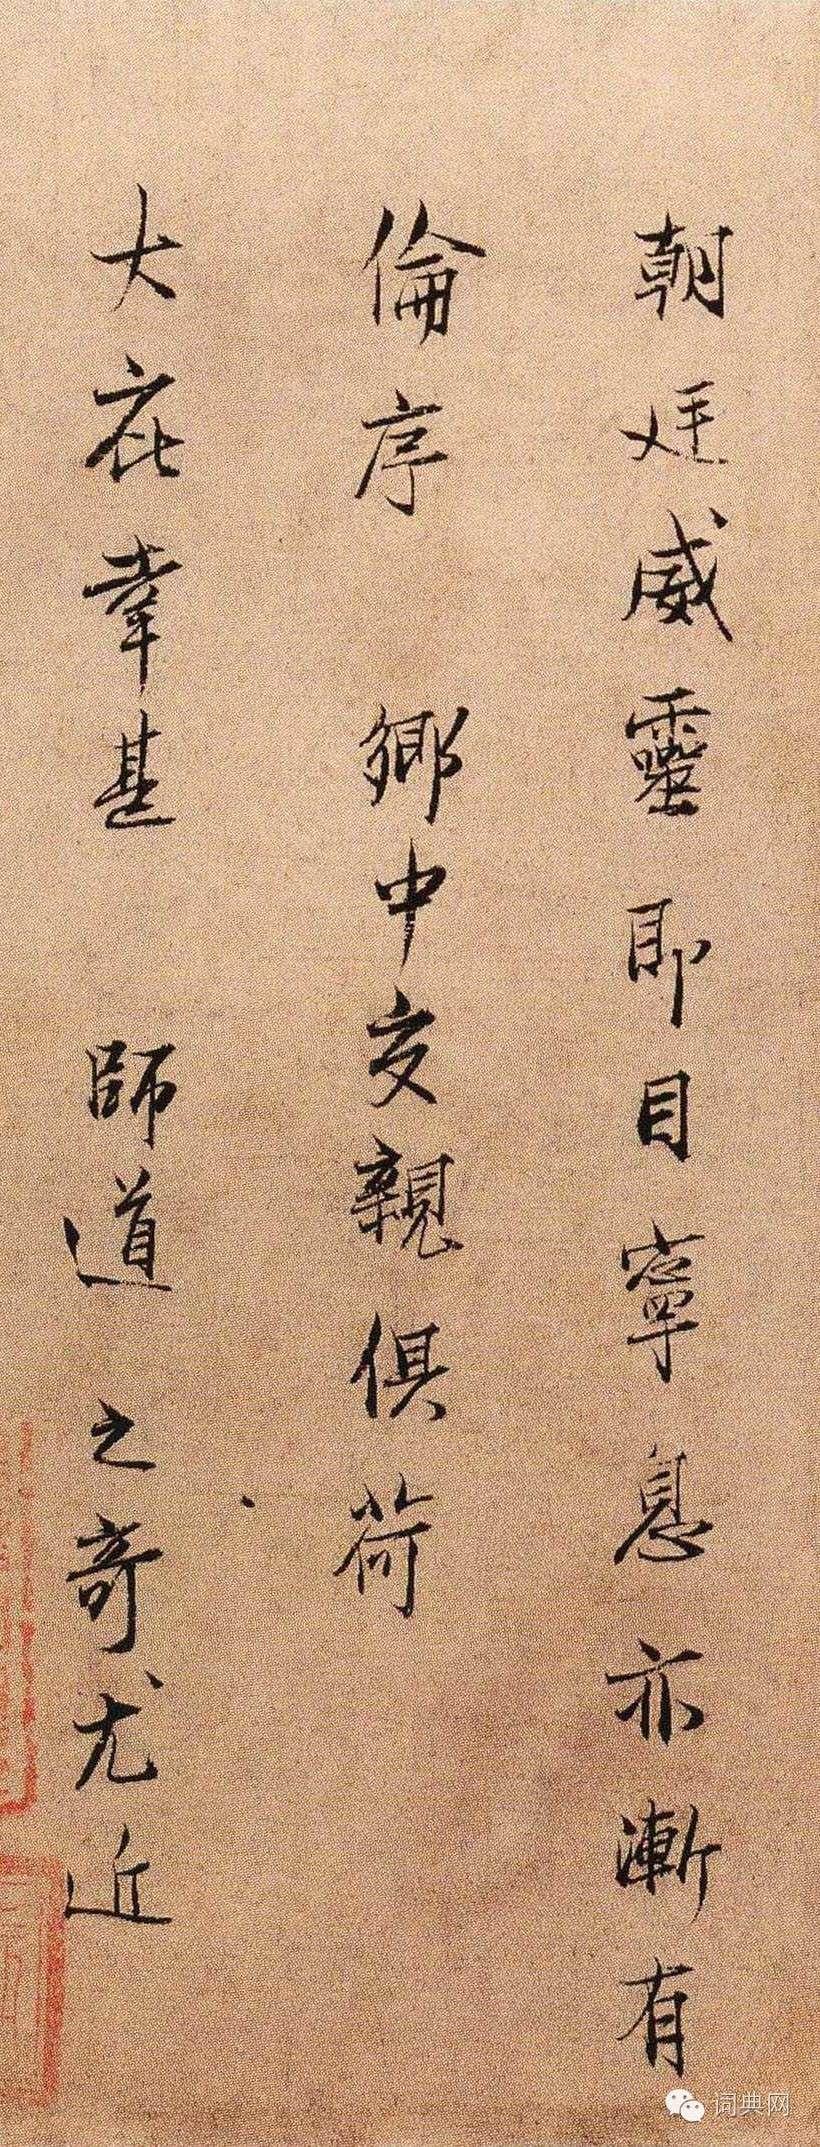 朝廷威靈即目寧息亦漸有
倫序 鄉中交親俱荷
大庇幸甚 師道之奇尤近
词典网